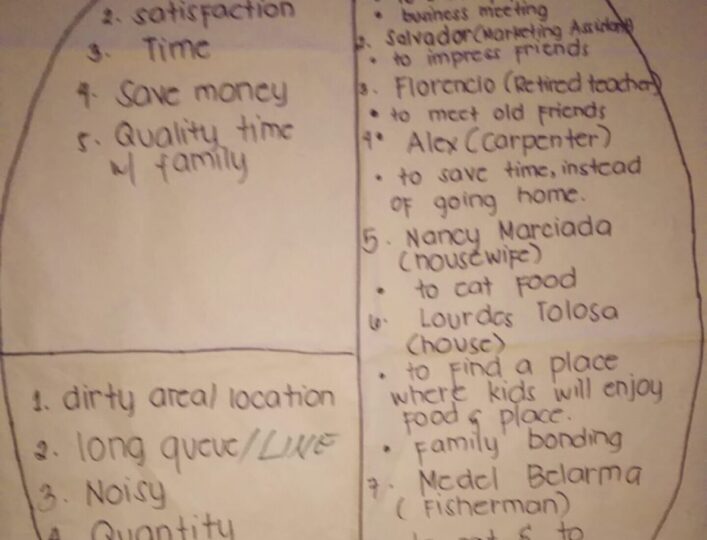 2. satisfaction
3. Time
4. Save money
5. Quality time
w/ family
1. dirty area/ location
2. long queue/LINE
3. Noisy
4. Quantity
• business meeting
2. Salvador (Marketing Assistant)
• to impress friends
3. Florencio (Retired teacher)
• to meet old friends
4• Alex (Carpenter)
• to save time, instead
of going home.
5. Nancy Marciada
(housewife)
• to eat food
6. Lourdes Tolosa
(house)
• to find a place
where kids will enjoy
food & place.
• family bonding
7. Medel Belarma
( Fisherman)
& to